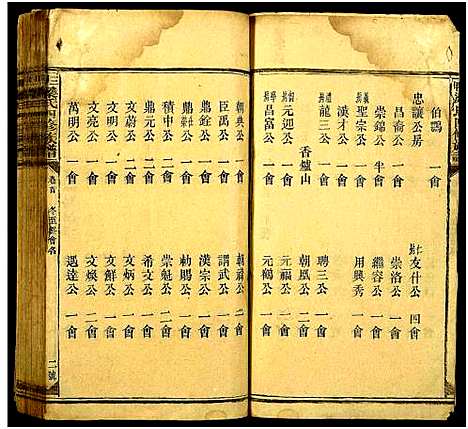 伯鸚 一會
忠讓公房
昌裔公 一會
崇錦公 半會
聖宗公 一會
漢才公 一會
龍三公 一會
香爐山
元迎公 一會
昌富公 一會
友什公 四會
崇洛公 一會
繼容公 一會
用興秀 一會
聘三公 一會
朝凰公 一會
元福公 一會
元鶴公 一會
朝典公 一會
臣萬公 一會
鼎銓公 一會
積中公 二會
鼎元公 一會
文蔚公 二會
文明公 一會
文亮公 一會
萬明公 一會
朝福公 二會
謂武公 一會
漢宗公 一會
勅賜公 一會
崇魁公 二會
希文公 一會
文炳公 一會
文鮮公 一會
文煥公 一會
遇達公 一會
氏四修族譜
卷首
二號